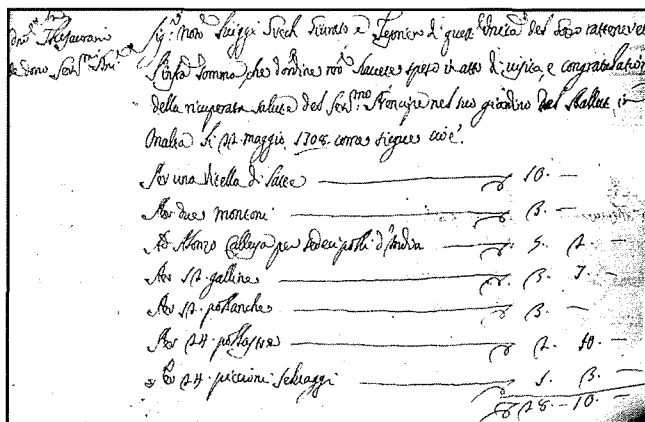 Thesaurarii
de dono Ser.mi
Sig.r Not.o Luiggi Giurato e Tesoriere di quest' Univ.tà del Gozo rattenevet
l'infra somma che d'ordine nro havete speso in atto di visita, e congratulation
della ricuperata salute del Ser.mo Principe nel suo giardino del Ballut in
Malta li 22 maggio 1708 come siegue cioè.
Per una vitella di latte 10. —
Per due montoni 3. —
Ad Alfonzo Calleja per sedeci polli d'India 5. 2 —
Per 12 galline 3. 7. —
Per 12 pollanche 3. —
Per 24 pollastre 2. 10. —
Per 24 piccioni selvaggi 1. 3. —
28 — 10. —